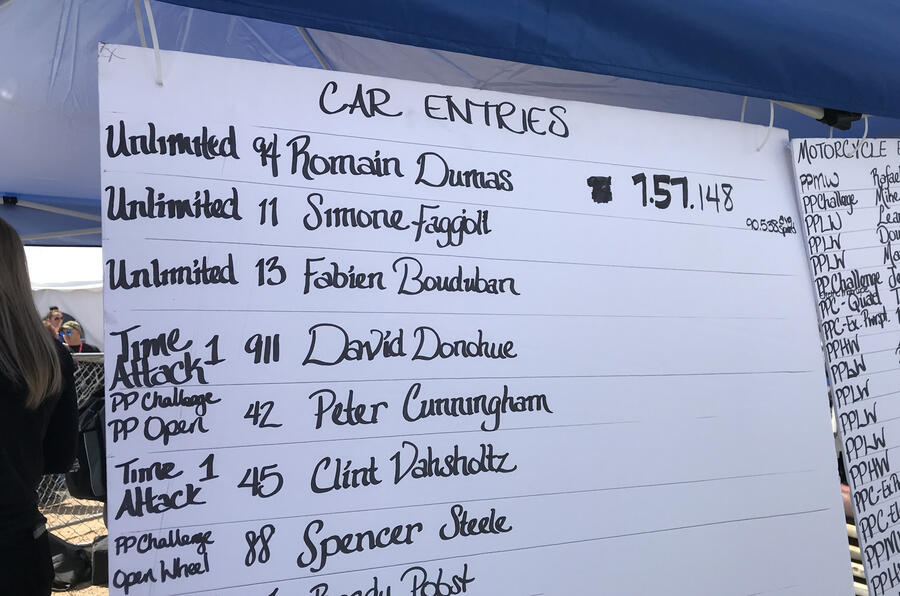 CAR ENTRIES
Unlimited 94 Romain Dumas 7.57.148
Unlimited 11 Simone Faggioli 90.538
Unlimited 13 Fabien Bouduban
Time Attack 1 911 David Donohue
PP Challenge PP Open 42 Peter Cunningham
Time 1 Attack 45 Clint Vahsholtz
PP Challenge Open Wheel 88 Spencer Steele
Pobst
MOTORCYCLE
PPMW Rafael
PPChallenge Mike
PPLW
PPLW
PPLW
PPChallenge
PPC-Quad
PPHW
PPLW
PPLW
PPLW
PPLW
PPHW